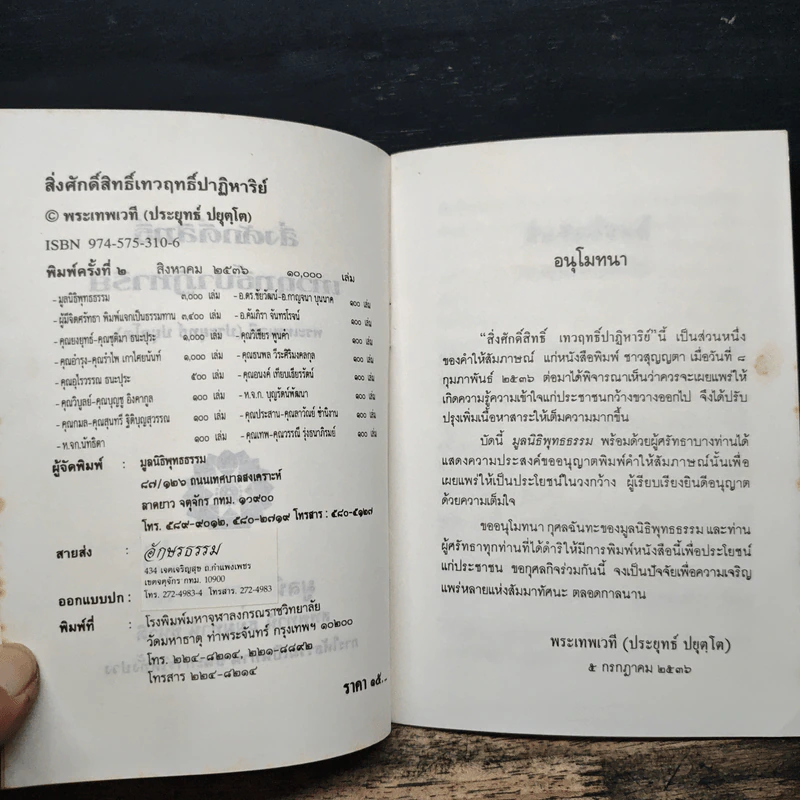 สิ่งศักดิ์สิทธิ์เทวฤทธิ์ปาฏิหาริย์
© พระเทพเวที (ประยุทธ์ ปยุตฺโต)
ISBN 974-575-310-6
พิมพ์ครั้งที่ ๒ สิงหาคม ๒๕๓๖ ๑๐,๐๐๐ เล่ม
-มูลนิธิพุทธธรรม ๓,๐๐๐ เล่ม -อ.ดร.ชัยวัฒน์-อ.กาญจนา บุนนาค ๑๐๐ เล่ม
-ผู้มีจิตศรัทธา พิมพ์แจกเป็นธรรมทาน ๓,๔๐๐ เล่ม -อ.คัมภิรา จันทรโรจน์ ๑๐๐ เล่ม
-คุณยงยุทธ์-คุณชุติมา ธนะปุระ ๑,๐๐๐ เล่ม -คุณวิเชียร พูนคำ ๑๐๐ เล่ม
-คุณอำรุง-คุณรำไพ เกาไศยนันท์ ๑,๐๐๐ เล่ม -คุณธนพล วีระศิริมงคลกุล ๑๐๐ เล่ม
-คุณอุไรวรรณ ธนะปุระ ๕๐๐ เล่ม -คุณอนงค์ เทียบเธียรรัตน์ ๑๐๐ เล่ม
-คุณวิบูลย์-คุณบุญชู อิงคากุล ๑๐๐ เล่ม -ห.จ.ก. บุญรัตน์พัฒนา ๑๐๐ เล่ม
-คุณกมล-คุณสุนทรี ฐิติบุญสุวรรณ ๑๐๐ เล่ม -คุณประสาน-คุณลาวัณย์ ชำนิงาน ๑๐๐ เล่ม
-ห.จก.นัทธิดา ๑๐๐ เล่ม -คุณเทพ-คุณวรรณี รุ่งธนาภิรมย์ ๑๐๐ เล่ม
ผู้จัดพิมพ์ : มูลนิธิพุทธธรรม
๘๗/๑๒๖ ถนนเทศบาลสงเคราะห์
ลาดยาว จตุจักร กทม. ๑๐๙๐๐
โทร. ๕๘๙-๙๐๑๒, ๕๘๐-๒๗๑๙ โทรสาร : ๕๘๐-๕๑๒๗
สายส่ง : อักษรธรรม
434 เจตเจริญสุข ถ.กำแพงเพชร
เขตจตุจักร กทม. 10900
ออกแบบปก : โทร. 272-4983-4 โทรสาร. 272-4983
พิมพ์ที่ : โรงพิมพ์มหาจุฬาลงกรณราชวิทยาลัย
วัดมหาธาตุ ท่าพระจันทร์ กรุงเทพฯ ๑๐๒๐๐
โทร. ๒๒๔-๘๒๑๔, ๒๒๑-๘๘๙๒
โทรสาร ๒๒๔-๘๒๑๔
ราคา ๑๕.-
อนุโมทนา
“สิ่งศักดิ์สิทธิ์ เทวฤทธิ์ปาฏิหาริย์”นี้ เป็นส่วนหนึ่ง
ของคำให้สัมภาษณ์ แก่หนังสือพิมพ์ ชาวสุญญตา เมื่อวันที่ ๘
กุมภาพันธ์ ๒๕๓๖ ต่อมาได้พิจารณาเห็นว่าควรจะเผยแพร่ให้
เกิดความรู้ความเข้าใจแก่ประชาชนกว้างขวางออกไป จึงได้ปรับ
ปรุงเพิ่มเนื้อหาสาระให้เต็มความมากขึ้น
บัดนี้ มูลนิธิพุทธธรรม พร้อมด้วยผู้ศรัทธาบางท่านได้
แสดงความประสงค์ขออนุญาตพิมพ์คำให้สัมภาษณ์นั้นเพื่อ
เผยแพร่ให้เป็นประโยชน์ในวงกว้าง ผู้เรียบเรียงยินดีอนุญาต
ด้วยความเต็มใจ
ขออนุโมทนา กุศลฉันทะของมูลนิธิพุทธธรรม และท่าน
ผู้ศรัทธาทุกท่านที่ได้ดำริให้มีการพิมพ์หนังสือนี้เพื่อประโยชน์
แก่ประชาชน ขอกุศลกิจร่วมกันนี้ จงเป็นปัจจัยเพื่อความเจริญ
แพร่หลายแห่งสัมมาทัศนะ ตลอดกาลนาน
พระเทพเวที (ประยุทธ์ ปยุตฺโต)
๕ กรกฎาคม ๒๕๓๖